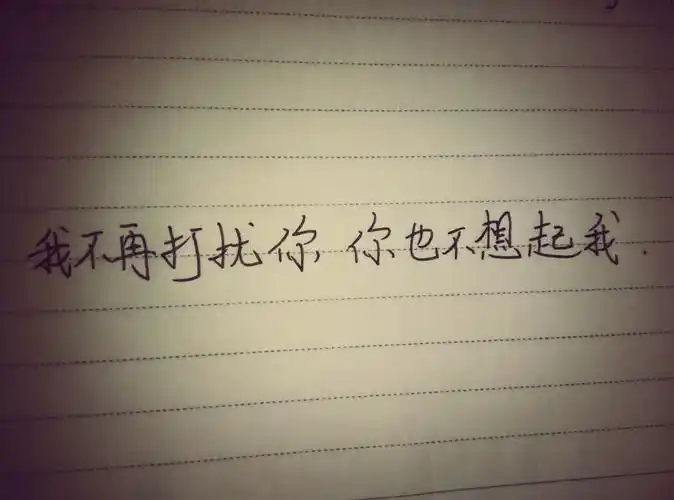 我不再打扰你,你也不想起我.